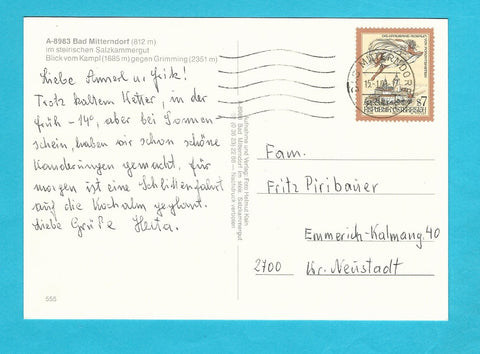 A-8983 Bad Mitterndorf (812 m)
im steirischen Salzkammergut
Blick vom Kampl (1685 m) gegen Grimming (2351 m)
Liebe Annerl u. Fritz!
Trotz kaltem Wetter, in der
früh -14°, aber bei Sonnen
schein, haben wir schon schöne
Wanderungen gemacht, für
morgen ist eine Schlittenfahrt
auf die Kochalm geplant.
Liebe Grüße Herta.
555
Aufnahme und Verlag: Foto Helmut Klein
A-8983 Bad Mitterndorf im steir. Salzkammergut
Nachdruck verboten
MITTERNDORF
S 7
REPUBLIK ÖSTERREICH
Fam.
Fritz Piribauer
Emmerich-Kalmang. 40
2700 Wr. Neustadt